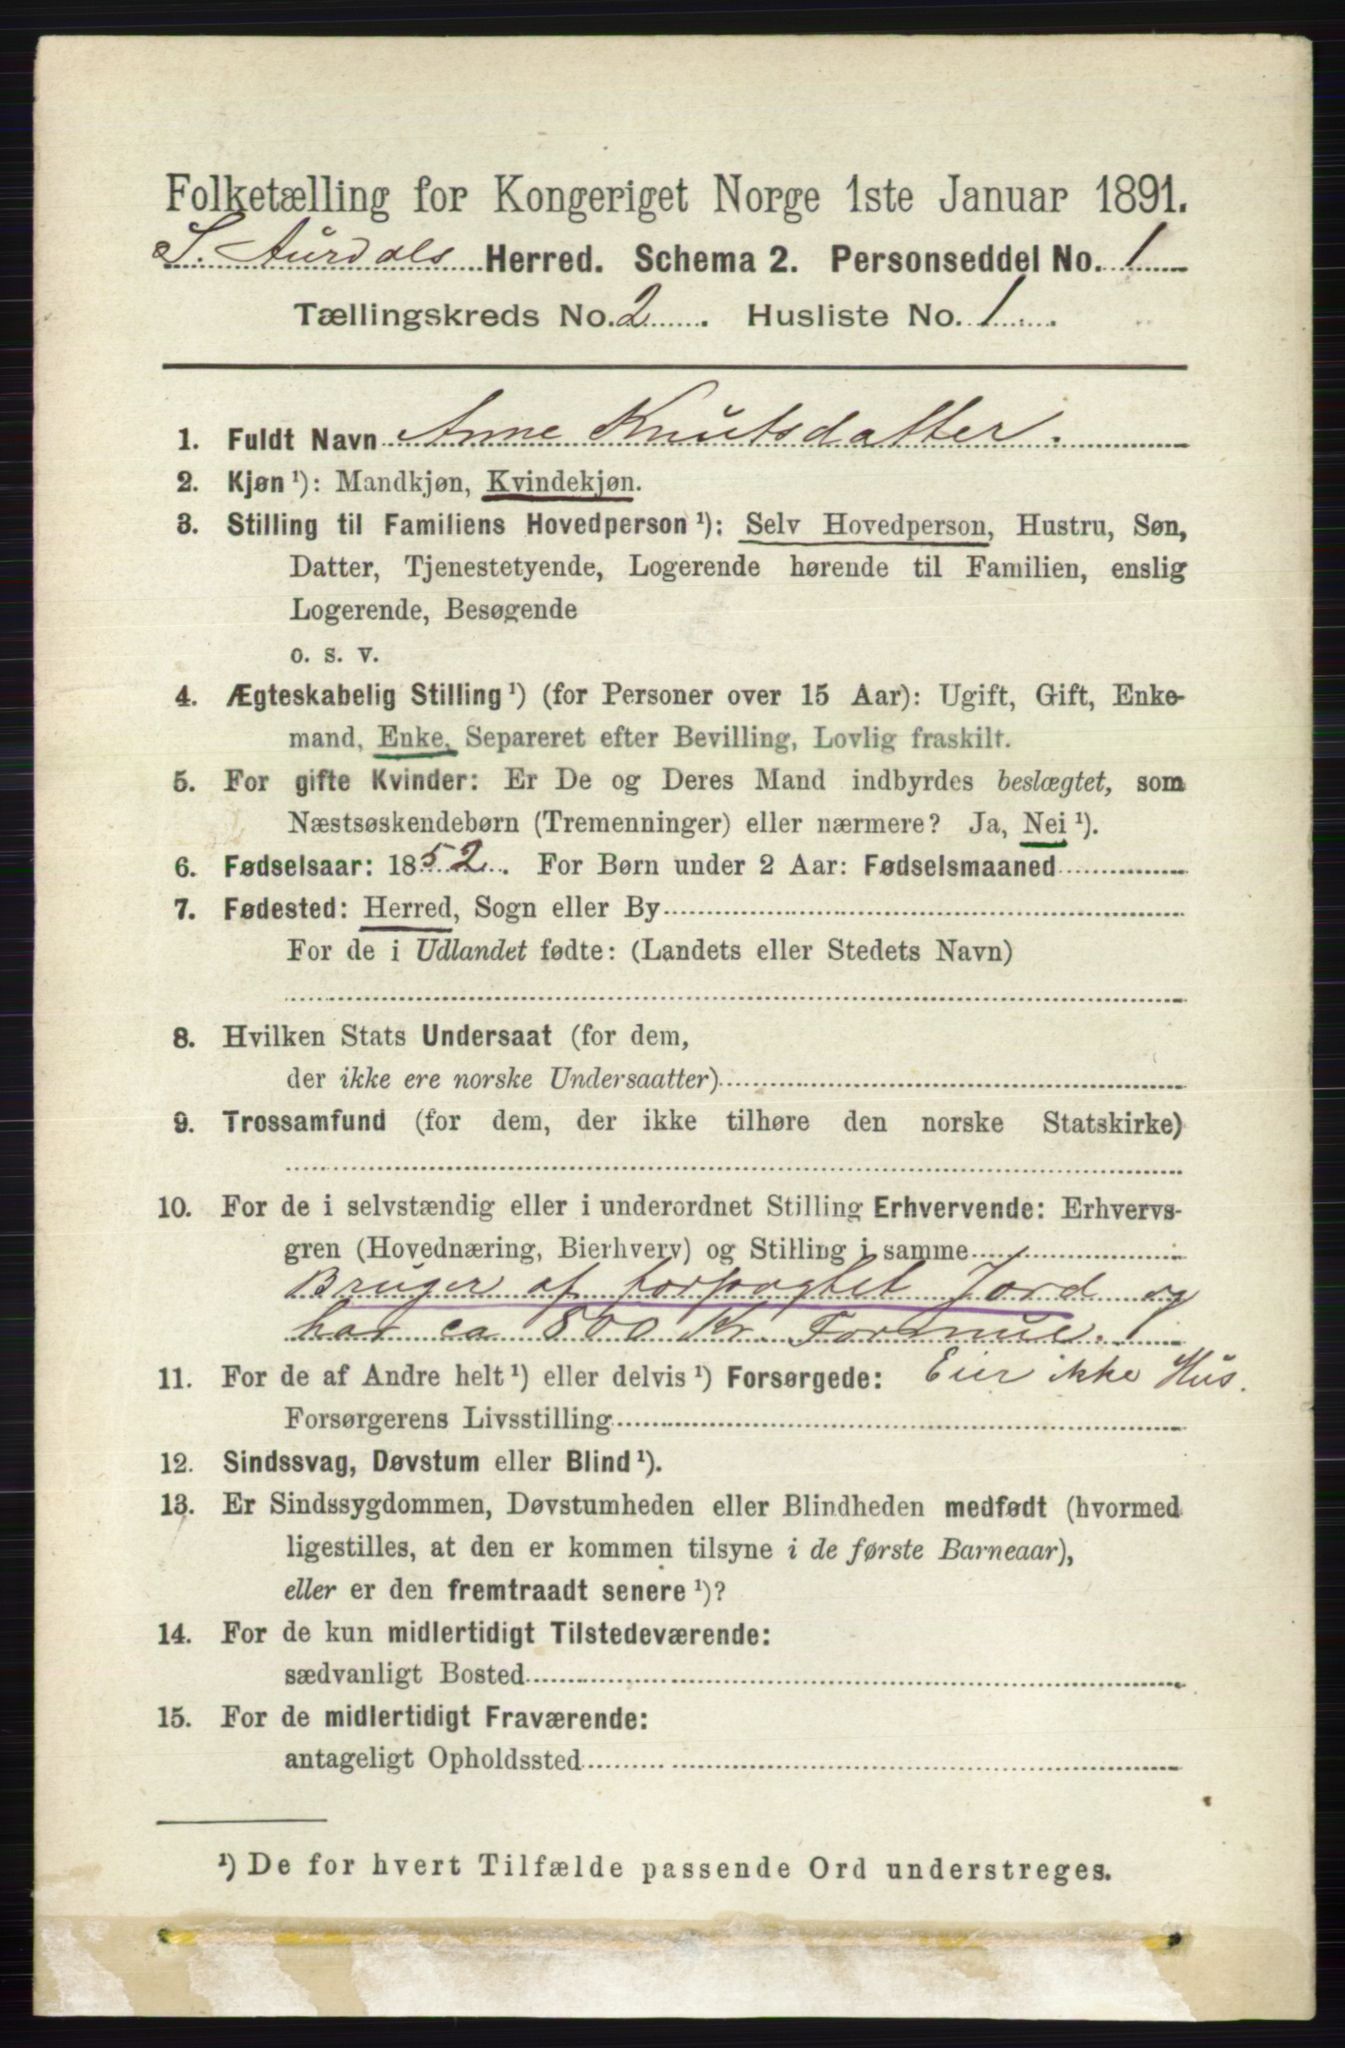 Folketælling for Kongeriget Norge 1ste Januar 1891.
S. Aurdals Herred. Schema 2. Personseddel No. 1
Tællingskreds No. 2. Husliste No. 1.
1. Fuldt Navn Anne Knutsdatter.
2. Kjøn ¹): Mandkjøn, Kvindekjøn.
3. Stilling til Familiens Hovedperson ¹): Selv Hovedperson, Hustru, Søn,
Datter, Tjenestetyende, Logerende hørende til Familien, enslig
Logerende, Besøgende
o. s. v.
4. Ægteskabelig Stilling ¹) (for Personer over 15 Aar): Ugift, Gift, Enke-
mand, Enke, Separeret efter Bevilling, Lovlig fraskilt.
5. For gifte Kvinder: Er De og Deres Mand indbyrdes beslægtet, som
Næstsøskendebørn (Tremenninger) eller nærmere? Ja, Nei ¹).
6. Fødselsaar: 1852. For Børn under 2 Aar: Fødselsmaaned
7. Fødested: Herred, Sogn eller By
For de i Udlandet fødte: (Landets eller Stedets Navn)
8. Hvilken Stats Undersaat (for dem,
der ikke ere norske Undersaatter)
9. Trossamfund (for dem, der ikke tilhøre den norske Statskirke)
10. For de i selvstændig eller i underordnet Stilling Erhvervende: Erhvervs-
gren (Hovednæring, Bierhverv) og Stilling i samme
Bruger af forpagtet Jord og
har ca 800 Kr. Formue.
11. For de af Andre helt ¹) eller delvis ¹) Forsørgede: Eier ikke Hus.
Forsørgerens Livsstilling
12. Sindssvag, Døvstum eller Blind ¹).
13. Er Sindssygdommen, Døvstumheden eller Blindheden medfødt (hvormed
ligestilles, at den er kommen tilsyne i de første Barneaar),
eller er den fremtraadt senere ¹)?
14. For de kun midlertidigt Tilstedeværende:
sædvanligt Bosted
15. For de midlertidigt Fraværende:
antageligt Opholdssted
¹) De for hvert Tilfælde passende Ord understreges.